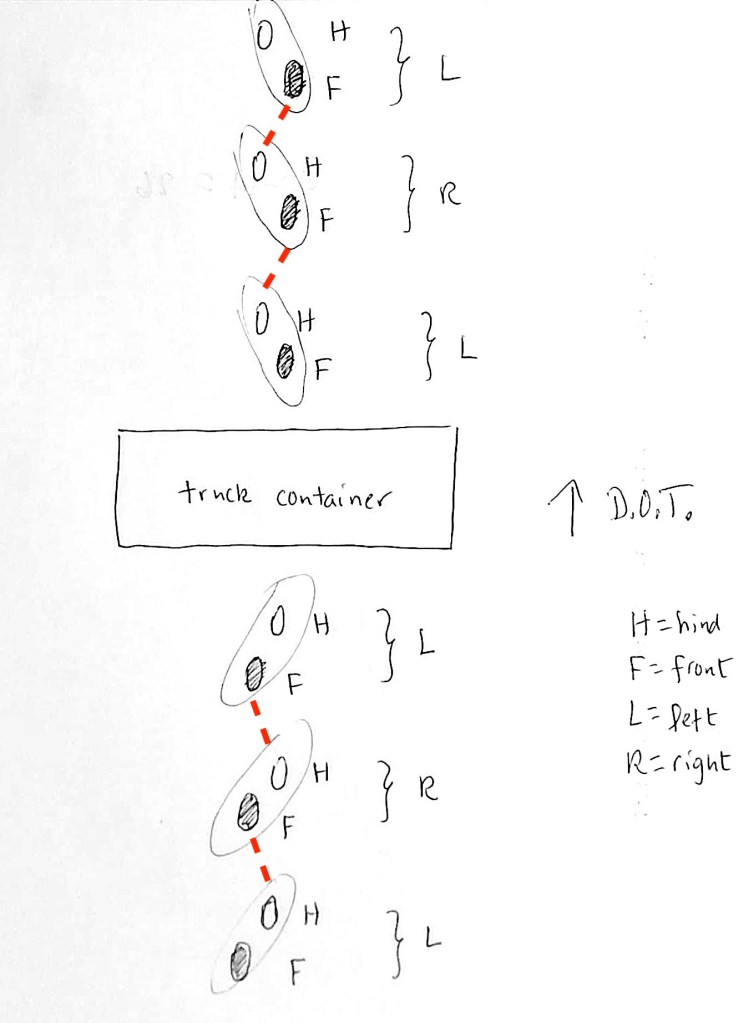 H
F
L
H
F
R
H
F
L
truck container
↑ D.O.T.
H
F
L
H = hind
F = front
L = left
R = right
H
F
R
H
F
L